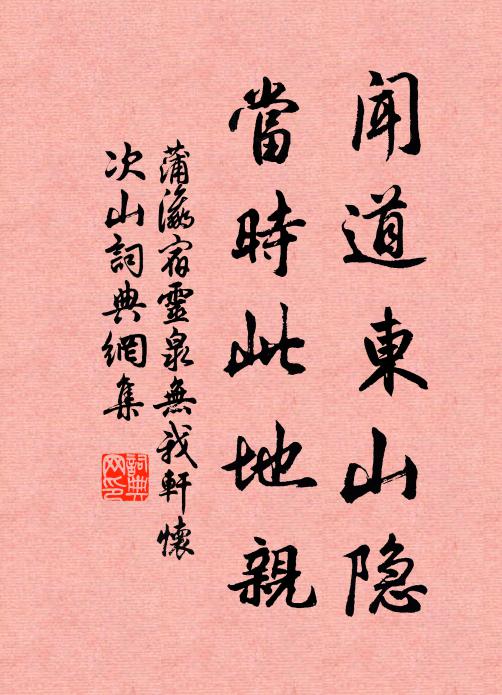 聞道東山隐
當時此地親
蒲瀛宿靈泉無我軒懷
次山詞典網集
詞典网印